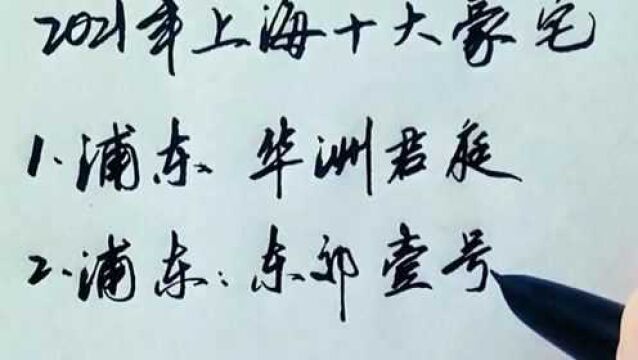 2021年上海十大豪宅
1.浦东:华洲君庭
2.浦东:东郊壹号